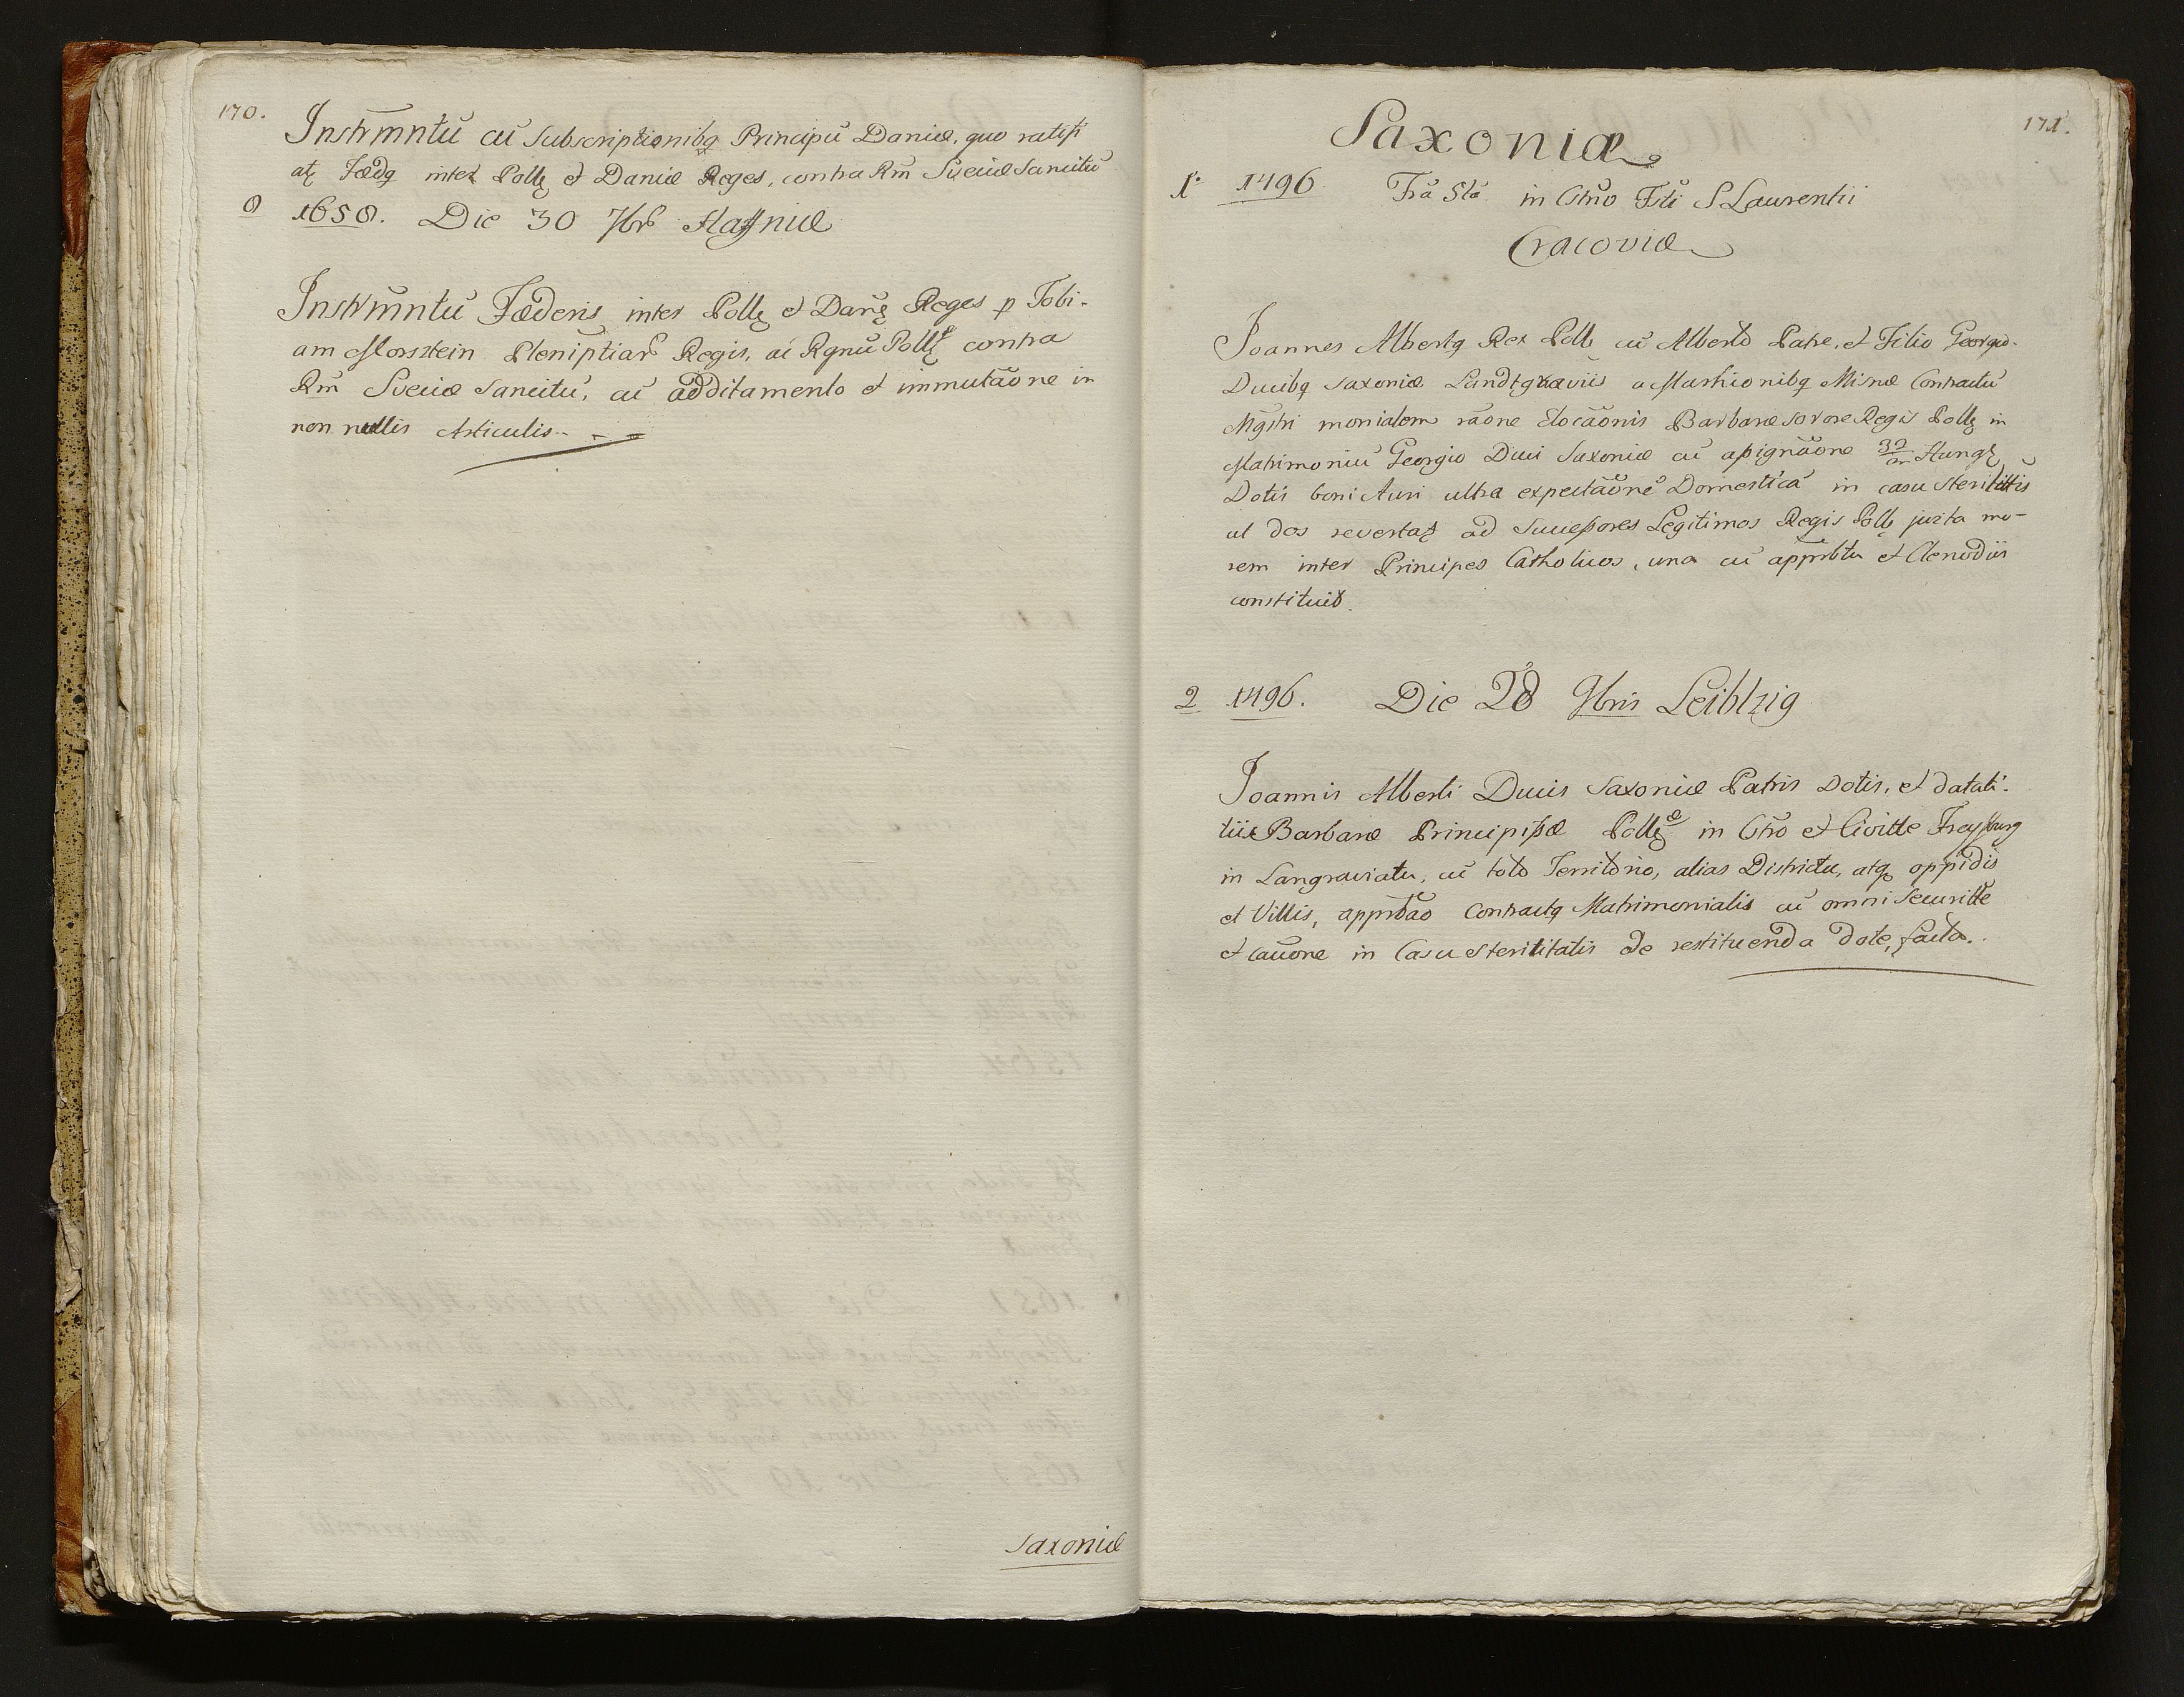 170.
Instrmntũ cũ Subscriptionibq Principũ Daniæ, quo ratifi
atʒ Fædq inter Pollę et Daniæ Reges, contra Rm̃ Sveciæ Sancitũ
8 1658. Die 30 7br̃ Haffniæ
Instrm̃ntũ Fæderis inter Pollę et Danę Reges p Tobi-
am Morsztein Pleniptiarõ Regis, ac Rgnũ Pollę contra
Rm̃ Sveciæ Sancitũ, cũ additamento et immutãone in
non nullis Articulis.
Saxoniæ
171.
Saxoniæ
1. 1496. Fr̃a 5tã in Cstr̃o Fsti S Laurentii
Cracoviæ
Joannes Albertq Rex Pollę cũ Alberto Patre, et Filio Georgio
Ducibq Saxoniæ Landtgraviis a Marhionibq Misnæ Contractũ
Mg̃tri monialem rãone Elocãonis Barbaræ sorore Regis Pollę in
Matrimoniũ Georgio Duci Saxoniæ cũ assignãone 30/m Hungę
Dotis boni Auri ultra expectãone Domesticã in casu sterilittis
ut dos revertatʒ ad Sucessores Legitimos Regis Pollę juxta mo-
rem inter Principes Catholicos, una cũ apprbtu et Clenodiis
constituit.
2 1496. Die 28 9bris Leiblzig
Joannis Alberti Ducis Saxoniæ Patris Dotis, et datali-
tii Barbaræ Principissæ Pollę in Cstro et Civitte Freyburg
in Langraviatu, cũ toto Territorio, alias Districtu, atq oppidis
et Villis, apprbão Contractq Matrimonialis cũ omni Securitte
et cauõne in Casu Sterilitatis de restituenda dote, facta.